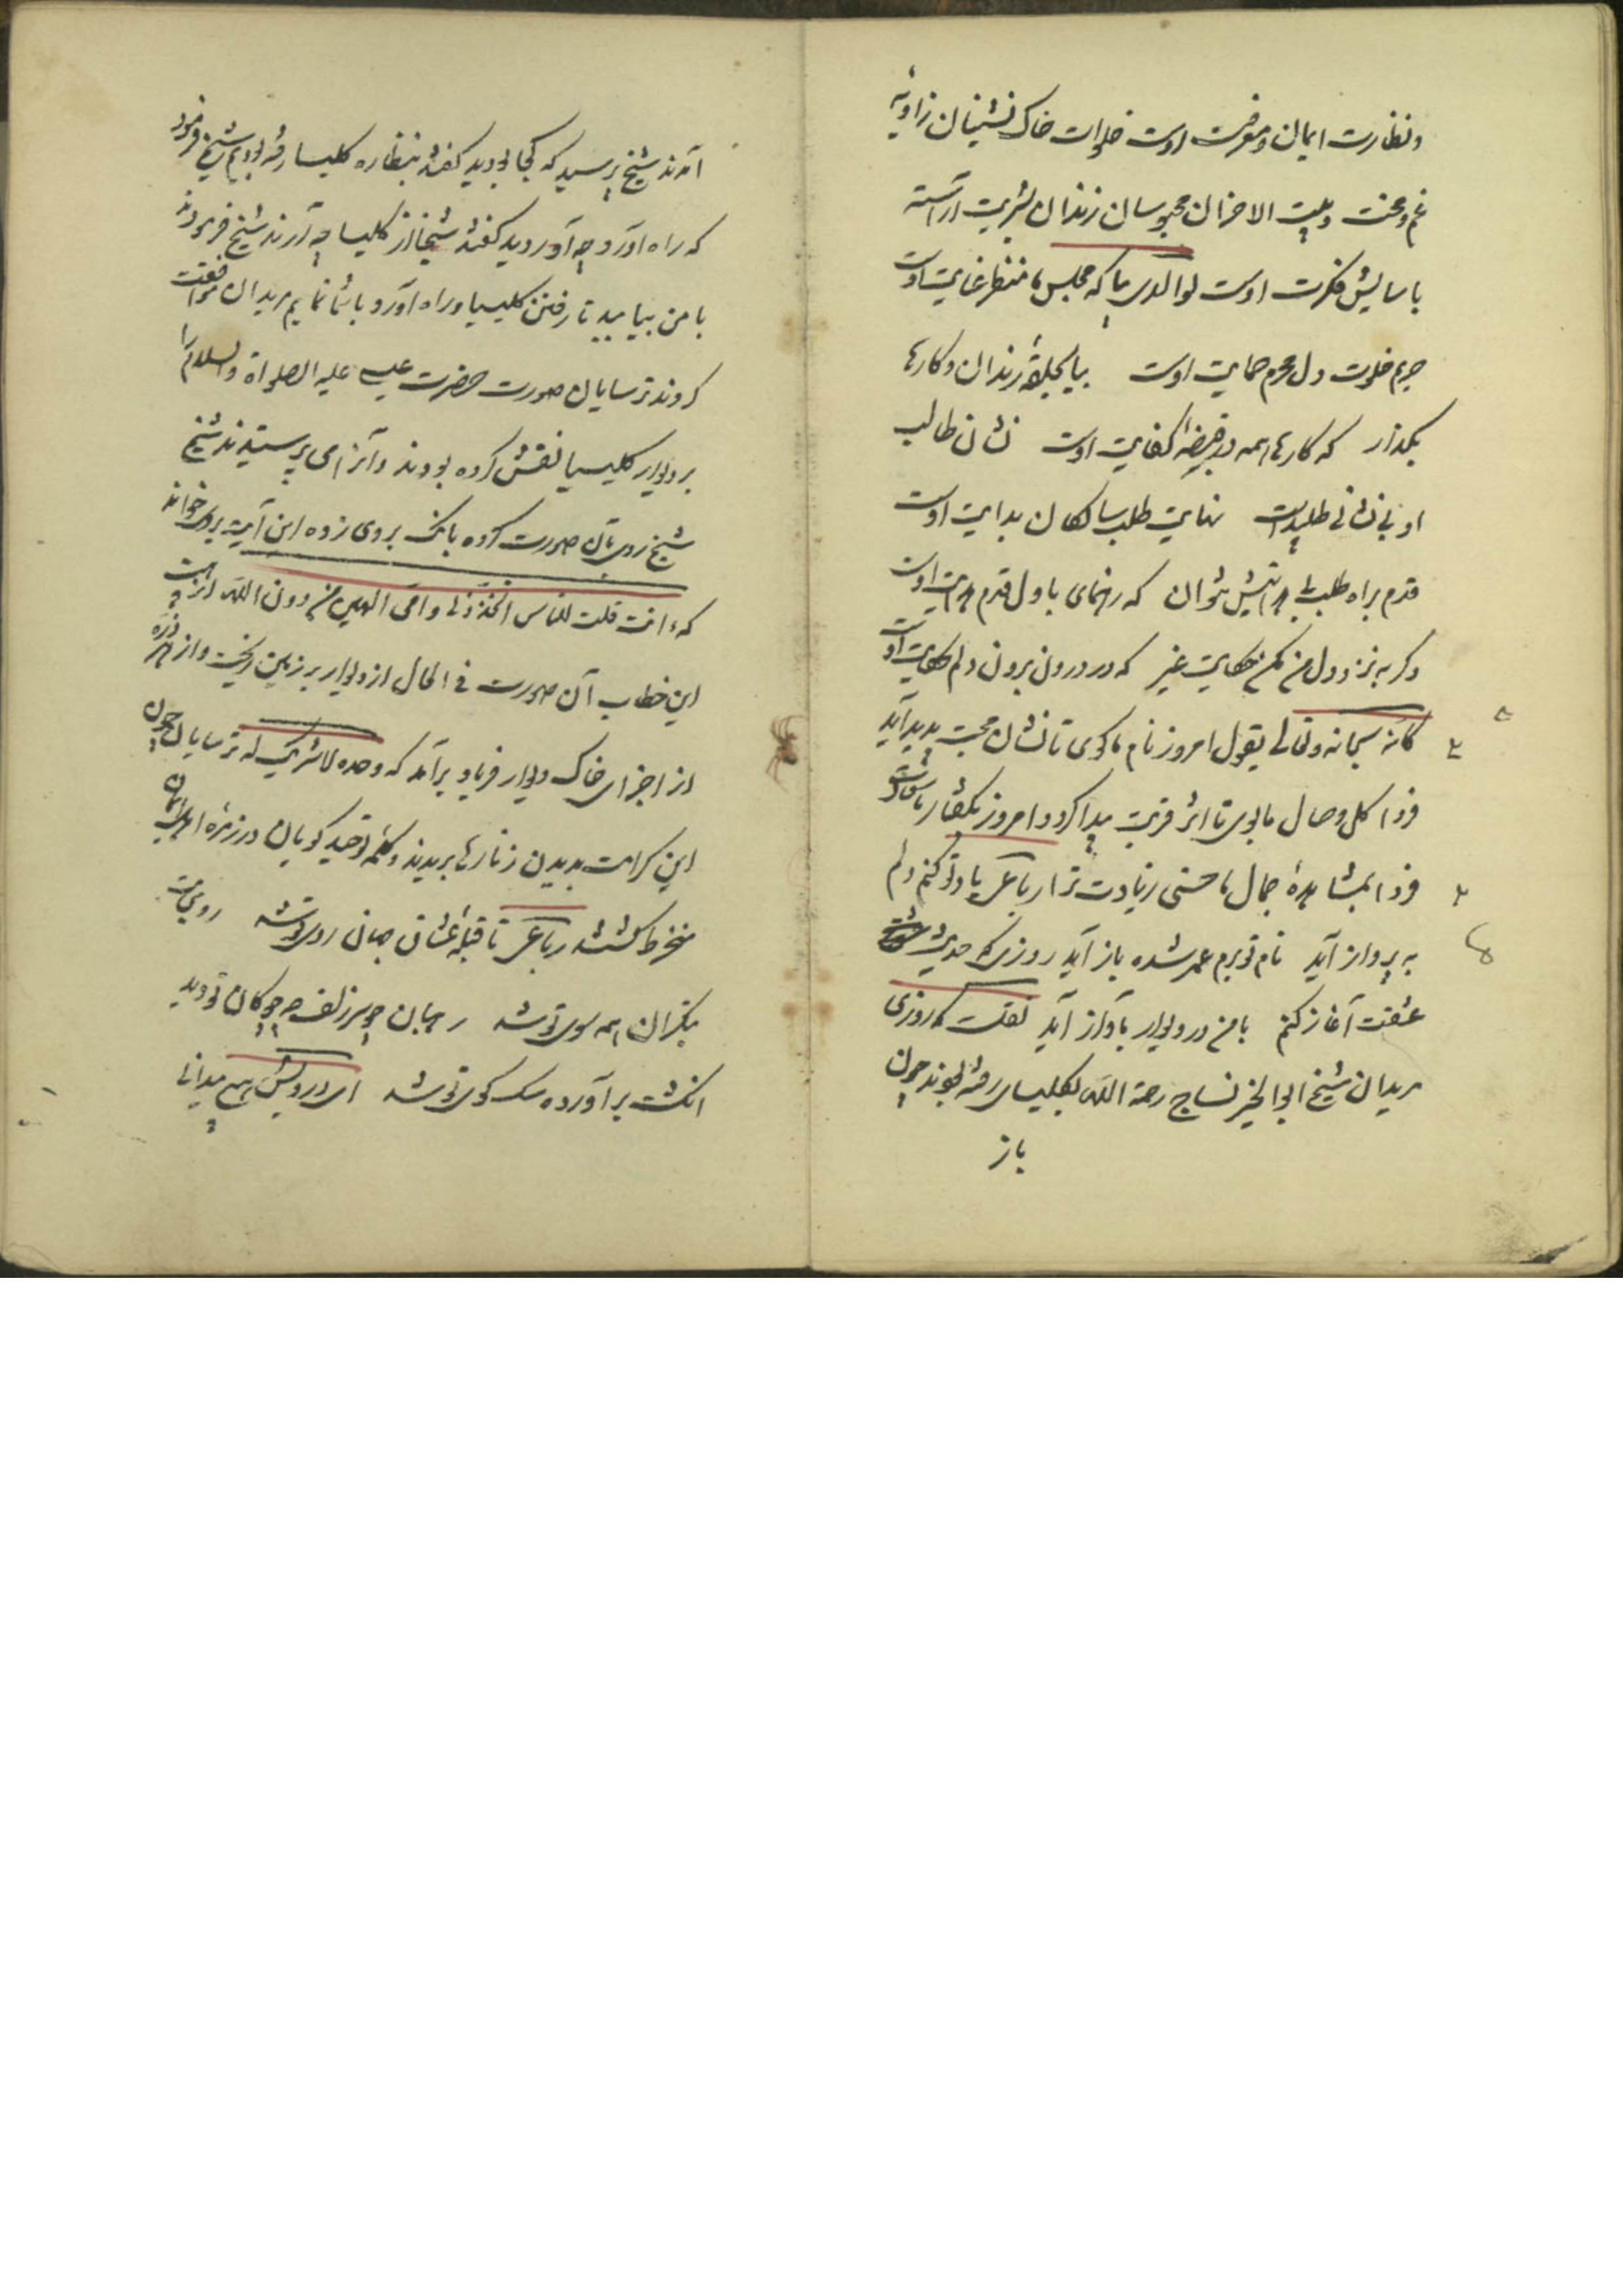 ونظارت ایمان ومعرفت اوست خلوات خاک نشینان زاویهٔ
غم ومحنت وبیت الاحزان محبوسان زندان بشریت آراسته
باسایش فکرت اوست لوالدی بیا که مجلس ما منتظر عنایت اوست
حریم خلوت دل محرم حمایت اوست بیا بحلقهٔ رندان و کارها
بگذار که کارها همه در قبضهٔ کفایت اوست نشان طالب
او بی نشانی طلبست نهایت طلب سالکان بدایت اوست
قدم براه طلب بی هدایتش نتوان که رهنمای باول قدم هدایت اوست
دگر به نزد دل من مکن حکایت غیر که در درون برون دلم حکایت اوست
کانه سبحانه وتعالی یقول امروز نام ما گوی تا نشان محبت پدید آید
فردا گل وصال ما بوی تا اثر قربت پیدا گردد امروز بگفتار ما
فردا بمشاهدهٔ جمال ما حسنی زیادت ترا رباعی یاد تو کنم دلم
به پرواز آید نام تو برم عمر شده باز آید روزی که حدیث
عشقت آغاز کنم با من در و دیوار بآواز آید نقلست که روزی
مریدان شیخ ابوالخیر نساج رحمة الله بکلیسای رفته بودند چون
باز
آمدند شیخ پرسید که کجا بودید گفتند بنظاره کلیسا رفته بودیم شیخ فرمود
که راه آورد چه آوردید گفتند شیخا از کلیسا چه آرند شیخ فرمودند
با من بیایید تا رفتن کلیسیا و راه آورد باشما نمایم مریدان موافقت
کردند ترسایان صورت حضرت عیسی علیه الصلواة والسلام را
بر دیوار کلیسیا نقش کرده بودند و آنرا می پرستیدند شیخ
شیخ روی بآن صورت کرده بانک بر وی زده این آیت بر وی خواند
که ءانت قلت للناس اتخذونی وامی الهین من دون الله از هیبت
این خطاب آن صورت فی الحال از دیوار بر زمین ریخت و از هر ذره
از اجزای خاک دیوار فریاد برآمد که وحده لا شریک له ترسایان چون
این کرامت بدیدند زنارها بریدند و کلمهٔ توحید گویان در زمرهٔ اهل ایمان
منخرط گشتند رباعی تا قبلهٔ عشاق جهان روی تو شد روی بت
بتکران همه سوی تو شد رهبان چو سر زلف چو چوکان تو دید
انکشت برآورده سک کوی تو شد ای درویش هیچ میدانی